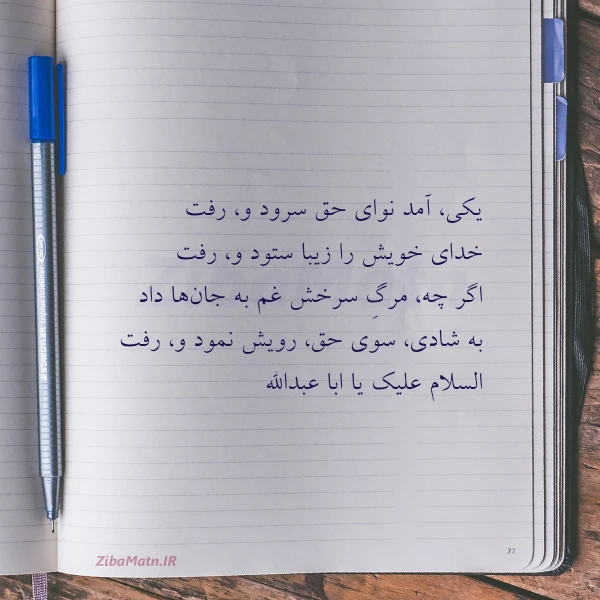 یکی، آمد نوای حق سرود و، رفت
خدای خویش را زیبا ستود و، رفت
اگر چه، مرگِ سرخش غم به جان‌ها داد
به شادی، سوی حق، رویش نمود و، رفت
السلام علیک یا ابا عبدالله
ZibaMatn.IR
77